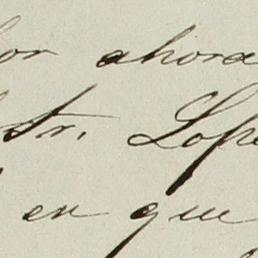 por ahora
Sr. Lope
en que